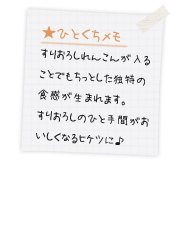 ★ひとくちメモ
すりおろしれんこんが入る
ことでもちっとした独特の
食感が生まれます。
すりおろしのひと手間がお
いしくなるヒケツに♪